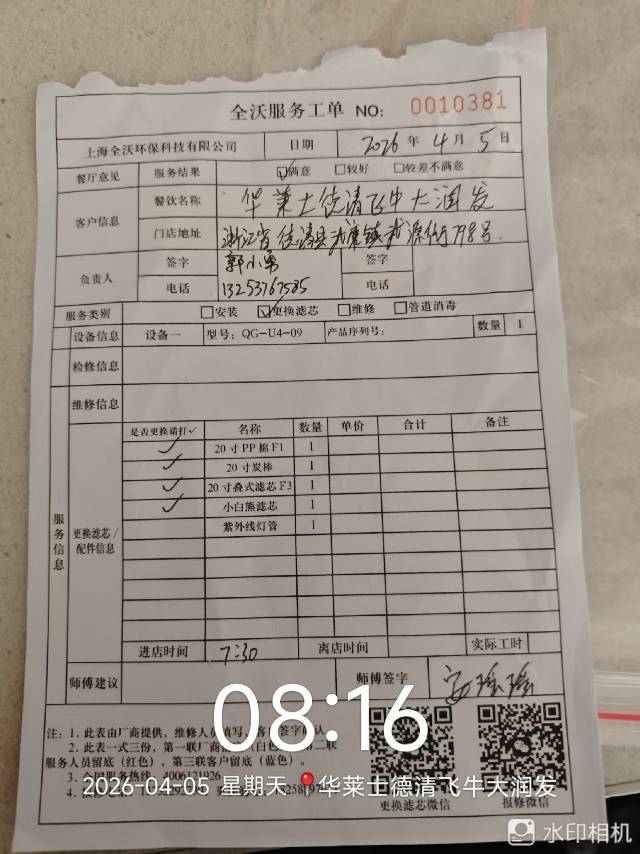 全沃服务工单 NO: 0010381
上海全沃环保科技有限公司 日期 2026 年 4 月 5 日
餐厅意见 服务结果 ☑满意 □较好 □较差不满意
客户信息 餐饮名称 华莱士德清飞牛大润发
门店地址 浙江省德清县武康镇武源街798号
负责人 签字 郭小勇 签字
电话 13253767585 电话
服务类别 □安装 ☑更换滤芯 □维修 □管道消毒
设备信息 设备一 型号: QG-U4-09 产品序列号: 数量 1
检修信息
维修信息
服务信息 更换滤芯/配件信息 是否更换请打✓ 名称 数量 单价 合计 备注
✓ 20寸PP棉F1 1
✓ 20寸炭棒 1
✓ 20寸叠式滤芯F3 1
✓ 小白熊滤芯 1
紫外线灯管 1
进店时间 7:30 离店时间 实际工时
师傅建议 师傅签字
08:16
注: 1. 此表由厂商提供, 维修人员填写, 客户签字确认
2. 此表一式三份, 第一联厂商
服务人员留底 (红色), 第三联客户留底 (蓝色)。
2026-04-05 星期天 华莱士德清飞牛大润发
更换滤芯微信 报修微信
水印相机